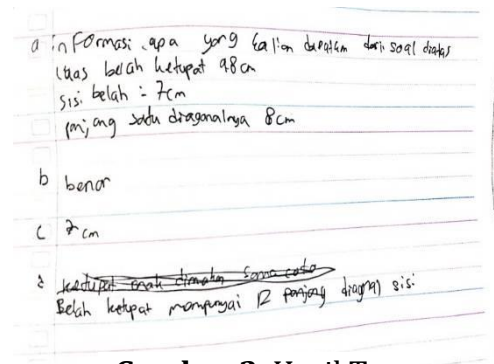 a informasi apa yang kalian dapatkan dari soal diatas
luas belah ketupat 98 cm
sisi belah = 7cm
panjang satu diagonalnya 8 cm
b benar
c 7 cm
ketupat enak dimakan sama
Belah ketupat mempunyai 12 panjang diagnal sisi